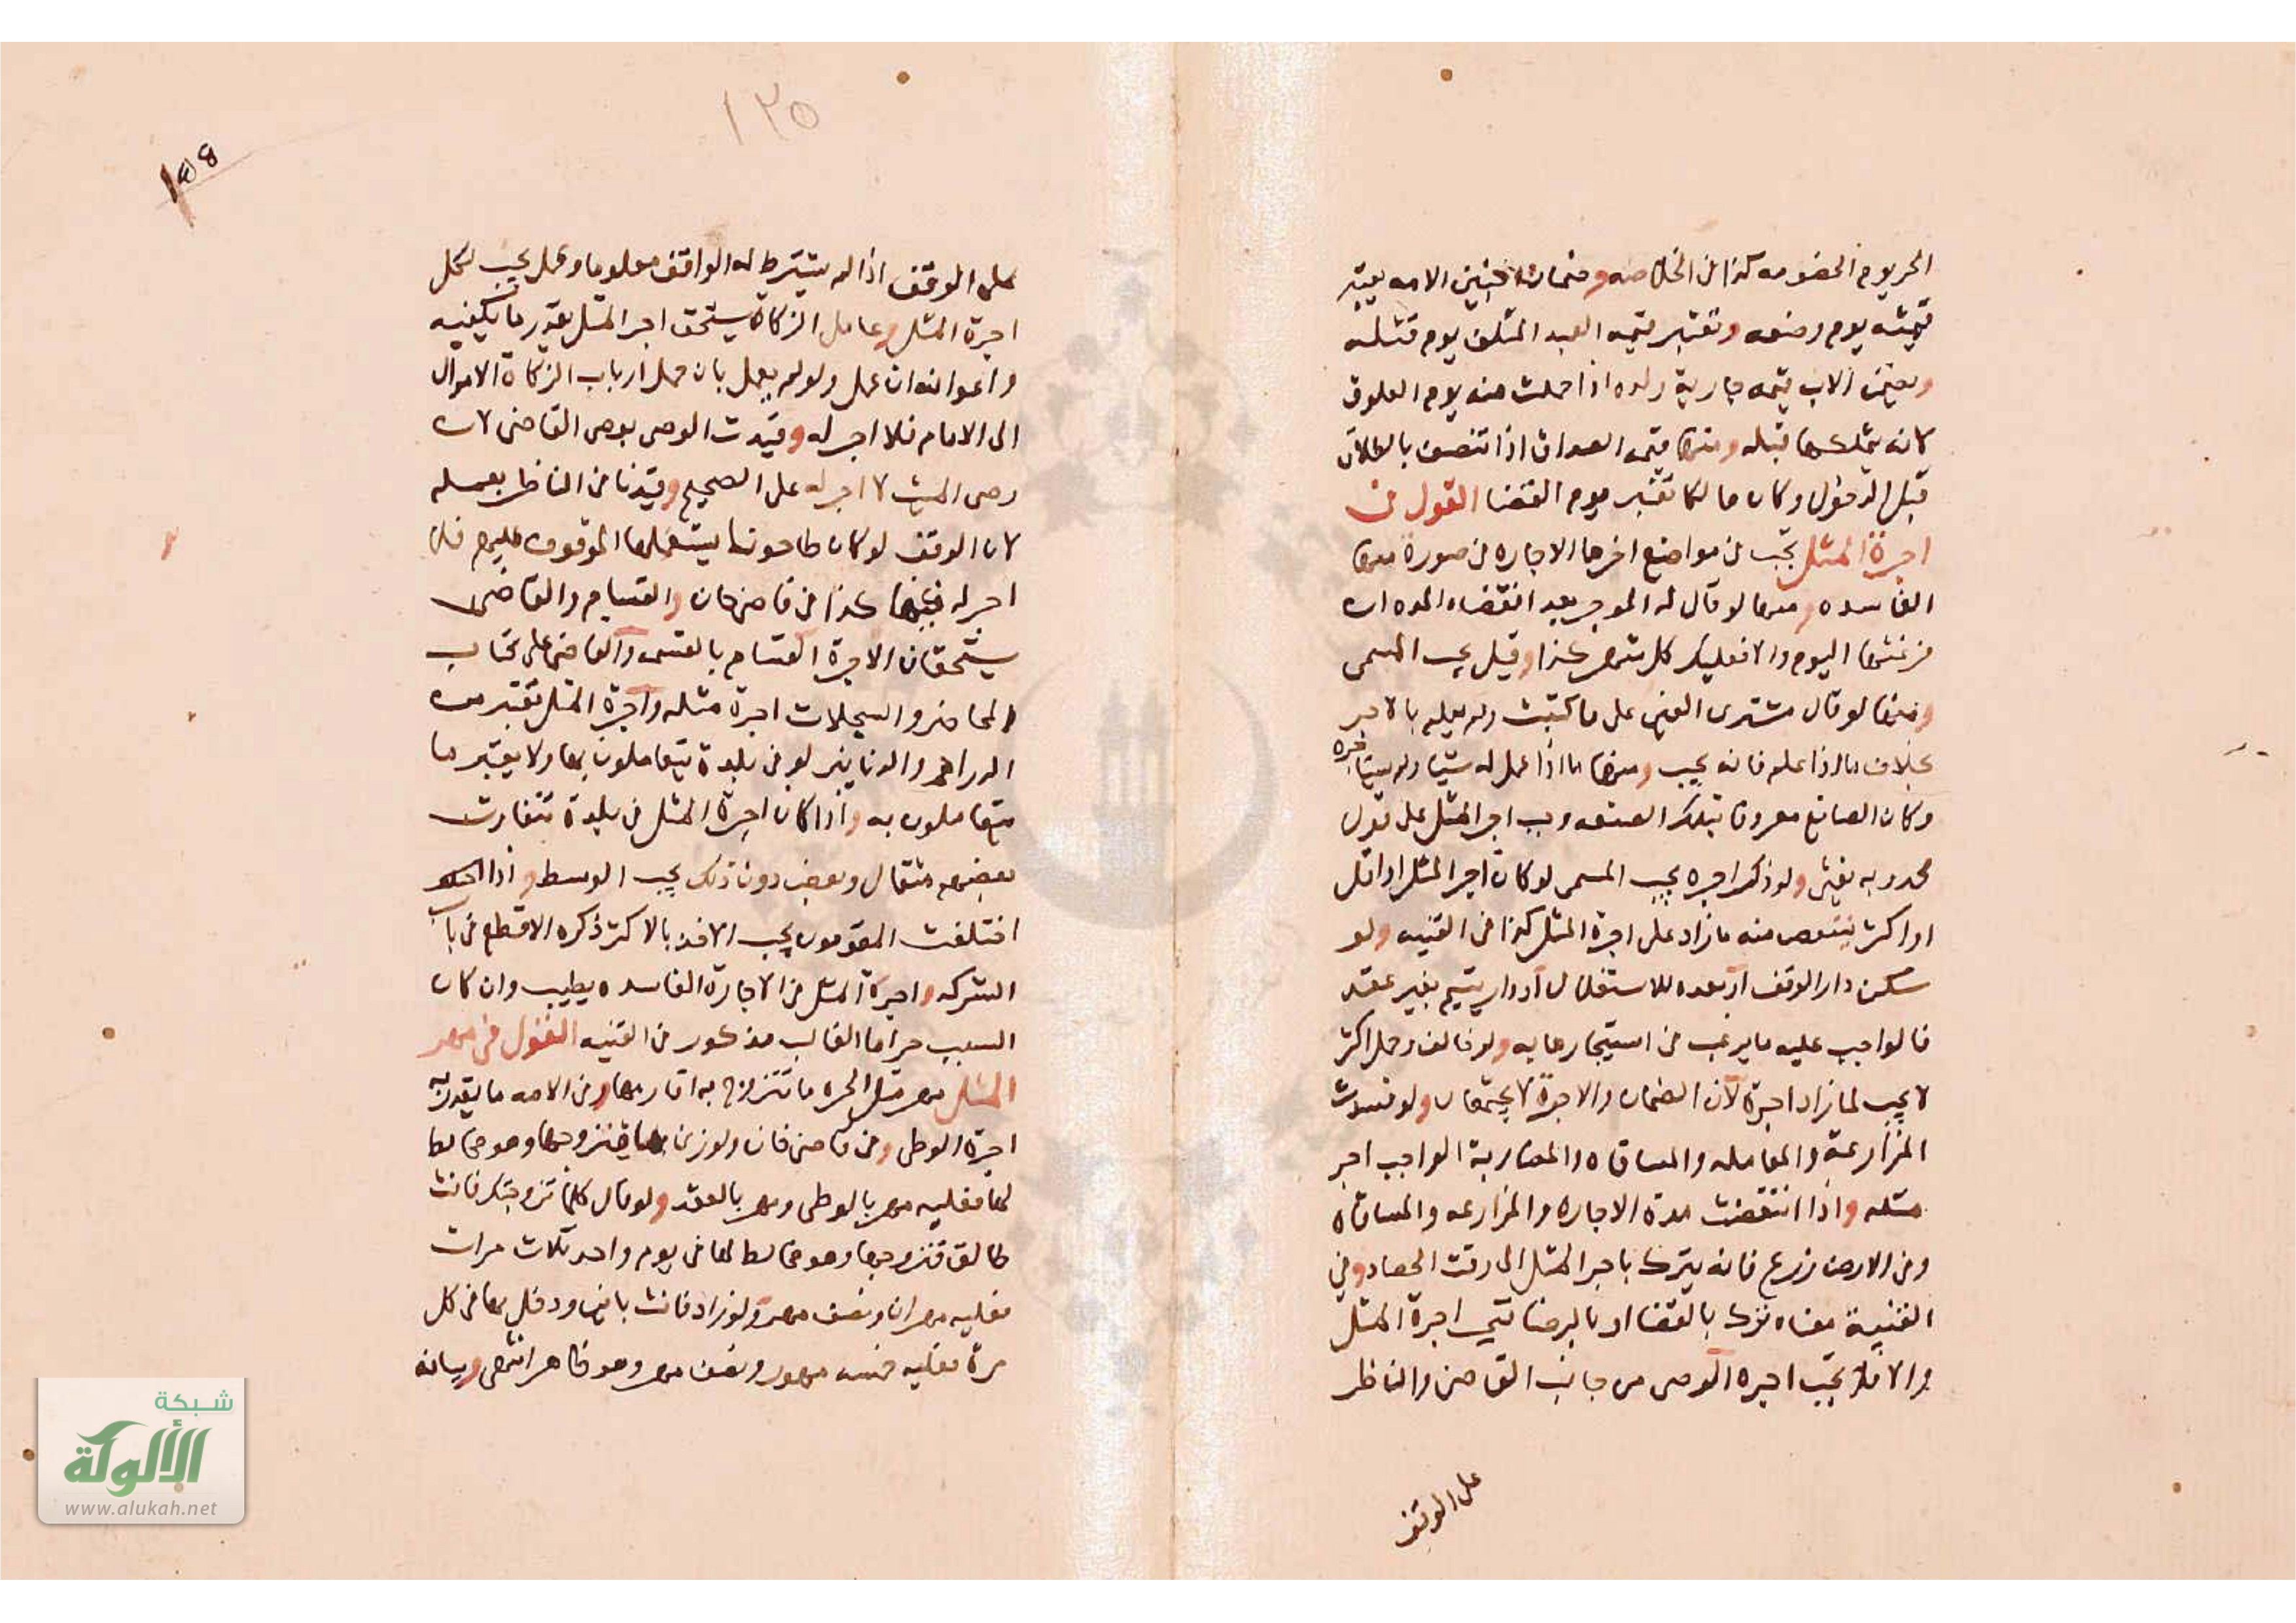 الحر يوم الخصومه كذا في الخلاصه وضمان جنين الامه يعتبر
قيمته يوم وضعه وتعتبر قيمه العبد المتلف يوم قتله
ويضمن الاب قيمه جارية ولده اذا حملت منه يوم العلوق
لانه تملكها قبله ومنها قيمه الصداق اذا تنصف بالطلاق
قبل الدخول وكان هالكا تعتبر يوم القضا القول في
اجرة المثل تجب في مواضع احدها الاجاره في صورة منها
الفاسده ومنها لو قال له الموجر بعد انقضاء المده ان
فرغتها اليوم والا فعليك كل شهر كذا وقيل يجب المسمى
ومنها لو قال مشترى العين على ما كتبت ولم يعلم بالاجر
بخلاف ما اذا علم فانه يجب ومنها ما اذا عمل له شيا ولم يستاجره
وكان الصانع معروفا بتلك الصنعه وجب اجر المثل على قول
محمد وبه يفتى ولو ذكرا اجره يجب المسمى لو كان اجر المثل او اقل
او اكثر ينقص منه ما زاد على اجرة المثل كذا في القنيه ولو
سكن دار الوقف او معده للاستغلال او دار يتيم بغير عقد
فالواجب عليه ما يرغب في استيجارها به ولو خالف وحمل اكثر
لا يجب لما زاد اجرة لان الضمان والاجرة لا يجتمعان ولو فسدت
المزارعة والمعامله والمساقاه والمضاربة الواجب اجر
مثله واذا انقضت مدة الاجاره والمزارعه والمساقاه
وفي الارض زرع فانه يترك باجر المثل الى وقت الحصاد وفي
القنية معناه تترك بالقضا او بالرضا تجب اجرة المثل
والا فلا تجب اجره الوصى من جانب القاضى والناظر
على الوقف
١٢٥
على الوقف اذا لم يشترط له الواقف معلوما وعمل يجب لكل
اجرة المثل وعامل الزكاة يستحق اجر المثل بقدر ما يكفيه
واعوانه ان عمل ولو لم يعمل بان حمل ارباب الزكاة الاموال
الى الامام فلا اجر له وقيدت الوصى بوصى القاضى لان
وصى الميت لا اجر له على الصحيح وقيدنا في الناظر بعمله
لان الوقف لو كان طاحونا يستعملها الموقوف عليهم فلا
اجر له فيها كذا في قاضى خان والقسام والقاضى
يستحقان الاجرة القسام بالقسمه والقاضى على كتاب
المحاضر والسجلات اجرة مثله واجرة المثل تعتبر من
الدراهم والدنانير لو في بلدة يتعاملون بها ولا يعتبر ما
يتعاملون به واذا كان اجرة المثل في بلدة تتفاوت
بعضهم مثقال وبعض دون ذلك يجب الوسط واذا
اختلفت المقومون يجب الاخذ بالاكثر ذكره الاقطع في باب
الشركه واجرة المثل في الاجارة الفاسده يطيب وان كان
السبب حراما الغالب مذكور في القنيه القول في مهر
المثل مهر مثل الحره ما تتزوج به اقاربها وفي الامه ما يقدر به
اجرة الوطى وفي قاضى خان ولو زنا بها فتزوجها وهو مخالط
لها فعليه مهر بالوطى ومهر بالعقد ولو قال كلما تزوجتك فانت
طالق فتزوجها وهو مخالط لها في يوم واحد ثلاث مرات
فعليه مهران ونصف مهر ولو زاد فانت باين ودخل بها في كل
مرة فعليه خمسه مهور ونصف مهر وهو ظاهر انتهى وبيانه
شبكة
الألوكة
www.alukah.net